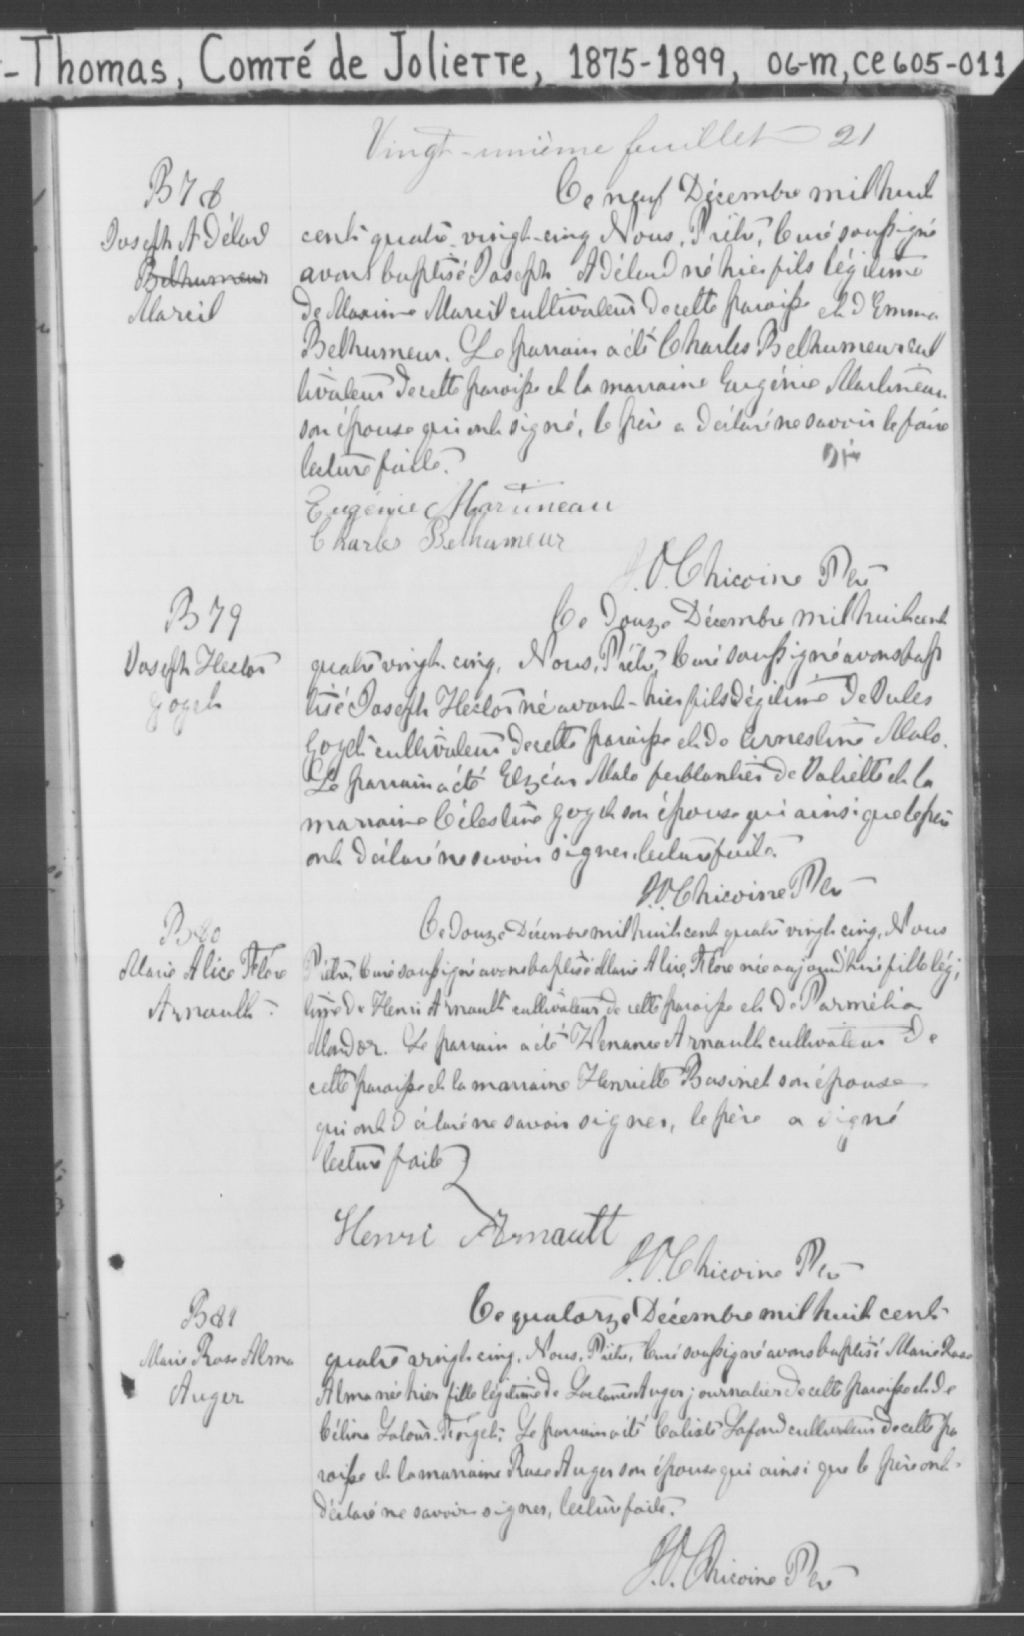 -Thomas, Comté de Joliette, 1875-1899, 06-m, ce605-011
Vingt-unième feuillet 21
B78
Joseph Adélard
Belhumeur
Mareil
Ce neuf Décembre mil huit
cent quatre-vingt-cinq Nous, Prêtre, Curé soussigné
avons baptisé Joseph Adélard né hier fils légitime
de Maxime Mareil cultivateur de cette paroisse et d'Emma
Belhumeur. Le parrain a été Charles Belhumeur cul
tivateur de cette paroisse et la marraine Eugénie Martineau
son épouse qui ont signé, le père a déclaré ne savoir le faire
lecture faite.
Eugénie Martineau
Charles Belhumeur
J.O. Chicoine Ptre
B79
Joseph Hector
Goyet
Ce douze Décembre mil huit cent
quatre vingt-cinq, Nous, Prêtre, Curé soussigné avons bap
tisé Joseph Hector né avant-hier fils légitime de Jules
Goyet cultivateur de cette paroisse et de Ernestine Malo.
Le parrain a été Elzéar Malo ferblantier de Joliette et la
marraine Célestine Goyet son épouse qui ainsi que le père
ont déclaré ne savoir signer, lecture faite.
J.O. Chicoine Ptre
B80
Marie Alice Flore
Arnault
Ce douze Décembre mil huit cent quatre vingt cinq, Nous
Prêtre, Curé soussigné avons baptisé Marie Alice Flore née aujourd'hui fille légi
time de Henri Arnault cultivateur de cette paroisse et de Parmélia
Mondor. Le parrain a été Venance Arnault cultivateur de
cette paroisse et la marraine Henriette Basinet son épouse
qui ont déclaré ne savoir signer, le père a signé
lecture faite
Henri Arnault
J.O. Chicoine Ptre
B81
Marie Rose Alma
Auger
Ce quatorze Décembre mil huit cent
quatre vingt cinq, Nous, Prêtre, Curé soussigné avons baptisé Marie Rose
Alma née hier fille légitime de Auger journalier de cette paroisse et de
Célina Latour-Forget. Le parrain a été Calixte Lafond cultivateur de cette pa
roisse et la marraine Rose Auger son épouse qui ainsi que le père ont
déclaré ne savoir signer, lecture faite.
J.O. Chicoine Ptre